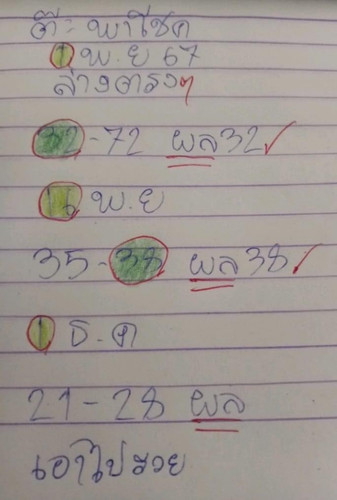 ต๊ะ พาโชค
1 พ.ย 67
ล่างตรงๆ
32-72 ผล32✓
พ.ย
35-38 ผล38✓
1 ธ.ค
21-28 ผล
เอาไปรวย